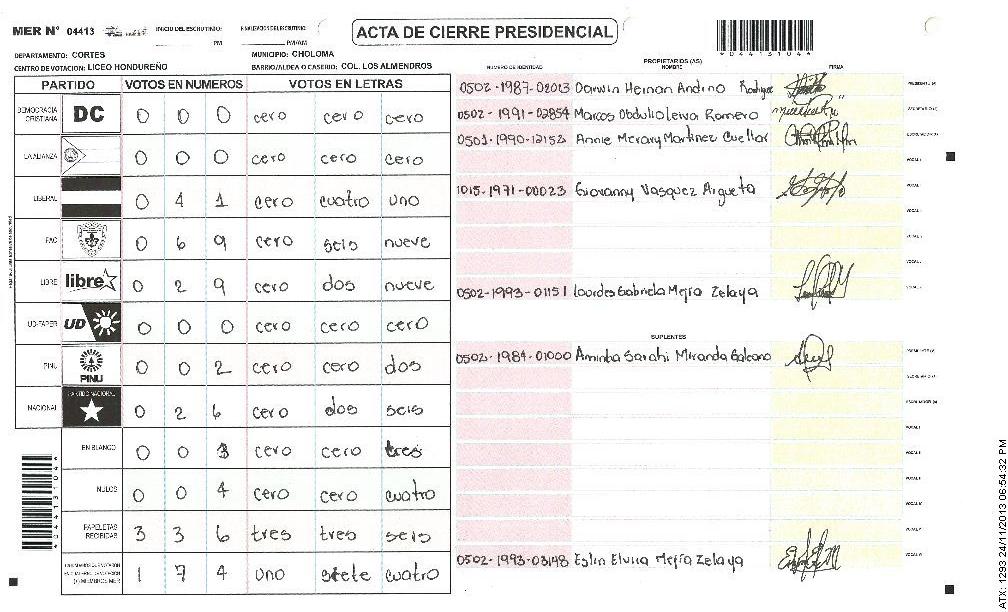 MER N° 04413 INICIO DEL ESCRUTINIO: PM FINALIZACION DEL ESCRUTINIO: PM/AM
ACTA DE CIERRE PRESIDENCIAL
DEPARTAMENTO: CORTES MUNICIPIO: CHOLOMA
CENTRO DE VOTACION: LICEO HONDUREÑO BARRIO/ALDEA O CASERIO: COL. LOS ALMENDROS
PARTIDO VOTOS EN NUMEROS VOTOS EN LETRAS
DEMOCRACIA CRISTIANA DC 0 0 0 cero cero cero
LA ALIANZA 0 0 0 cero cero cero
LIBERAL 0 4 1 cero cuatro uno
PAC 0 6 9 cero seis nueve
LIBRE libre 0 2 9 cero dos nueve
UD-FAPER UD 0 0 0 cero cero cero
PINU PINU 0 0 2 cero cero dos
NACIONAL PARTIDO NACIONAL 0 2 6 cero dos seis
EN BLANCO 0 0 3 cero cero tres
NULOS 0 0 4 cero cero cuatro
PAPELETAS RECIBIDAS 3 3 6 tres tres seis
1 7 4 uno siete cuatro
04413104
PROPIETARIOS (AS)
NUMERO DE IDENTIDAD NOMBRE FIRMA
0502-1987-02013 Darwin Hernan Andino Rodriguez
0502-1991-02854 Marcos Obdulio leiva Romero
0501-1990-12152 Annie Merary Martinez Cuellar
1015-1971-00023 Giovanny Vasquez Argueta
0502-1993-01151 lourdes Gabriela Mejia Zelaya
SUPLENTES
0502-1984-01000 Aminta Sarahi Miranda Galeano
0502-1993-03148 Eslin Elvira Mejia Zelaya
ATX: 1293 24/11/2013 06:54:32 PM